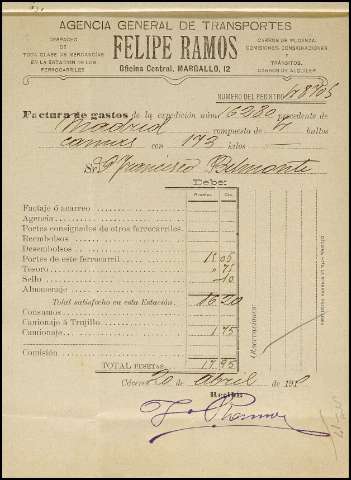 AGENCIA GENERAL DE TRANSPORTES
DESPACHO
DE
TODA CLASE DE MERCANCÍAS
EN LA ESTACIÓN DE LOS
FERROCARRILES
FELIPE RAMOS
Oficina Central, MARGALLO, 12
COMISIONES CONSIGNACIONES
Y
TRÁNSITOS.
NÚMERO DEL REGISTRO
Factura de gastos de la expedición núm. 16280 procedente de
Madrid compuesta de bultos
camas con 173 kilos
Sr. D. Francisco Belmonte
Debe:
Pesetas Cts.
Factaje ó acarreo
Agencia
Portes consignados de otros ferrocarriles
Reembolsos
Desembolsos
Portes de este ferrocarril 15 05
Tesoro
Sello 10
Almacenaje
Total satisfecho en esta Estación 16 20
Consumos
Camionaje á Trujillo
Camionaje 1 75
Comisión
TOTAL PESETAS 17 95
OBSERVACIONES
Cáceres 20 de abril de 191
Recibí
F. Ramos